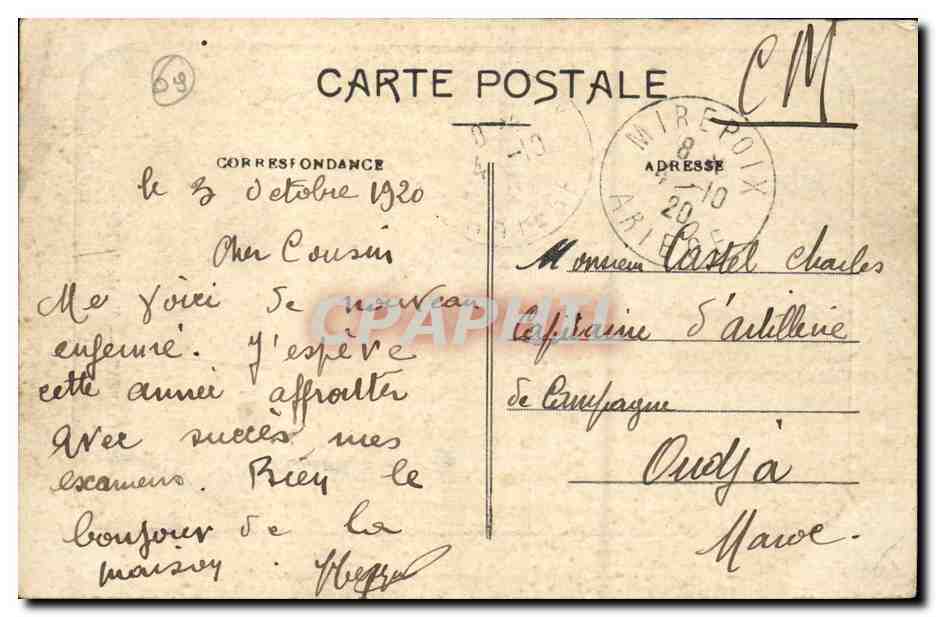 09
CARTE POSTALE
CM
CORRESPONDANCE
le 3 Octobre 1920
Cher Cousin
Me voici de nouveau
enfermé. J'espère
cette année affronter
avec succès mes
examens. Bien le
bonjour de la
maison.
ADRESSE
MIREPOIX
8
4 -10
20
ARIEGE
Monsieur Castel Charles
Capitaine d'artillerie
de Campagne
Oudjà
Maroc.
CPAPHIL